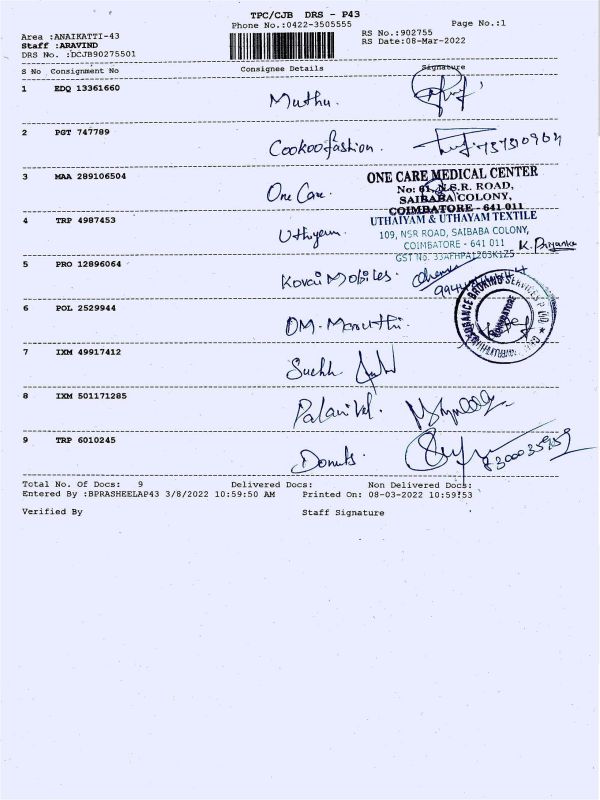 TPC/CJB DRS - P43
Phone No.:0422-3505555
Page No.:1
Area :ANAIKATTI-43
RS No.:902755
Staff :ARAVIND
RS Date:08-Mar-2022
DRS No. :DCJB90275501
S No Consignment No Consignee Details Signature
1 EDQ 13361660 Muthu.
2 PGT 747789 Cookoofashion.
3 MAA 289106504 One Care.
ONE CARE MEDICAL CENTER
No: 61, N.S.R. ROAD,
SAIBABA COLONY,
COIMBATORE - 641 011
4 TRP 4987453
UTHAIYAM & UTHAYAM TEXTILE
109, NSR ROAD, SAIBABA COLONY,
COIMBATORE - 641 011 K. Priyanka
5 PRO 12896064 Kovai Mobiles.
6 POL 2529944 OM. Maruthi.
COIMBATORE
7 IXM 49917412
8 IXM 501171285 Palanivel.
9 TRP 6010245 Donuts.
Total No. Of Docs: 9 Delivered Docs: Non Delivered Docs:
Entered By :BPRASHEELAP43 3/8/2022 10:59:50 AM Printed On: 08-03-2022 10:59:53
Verified By Staff Signature